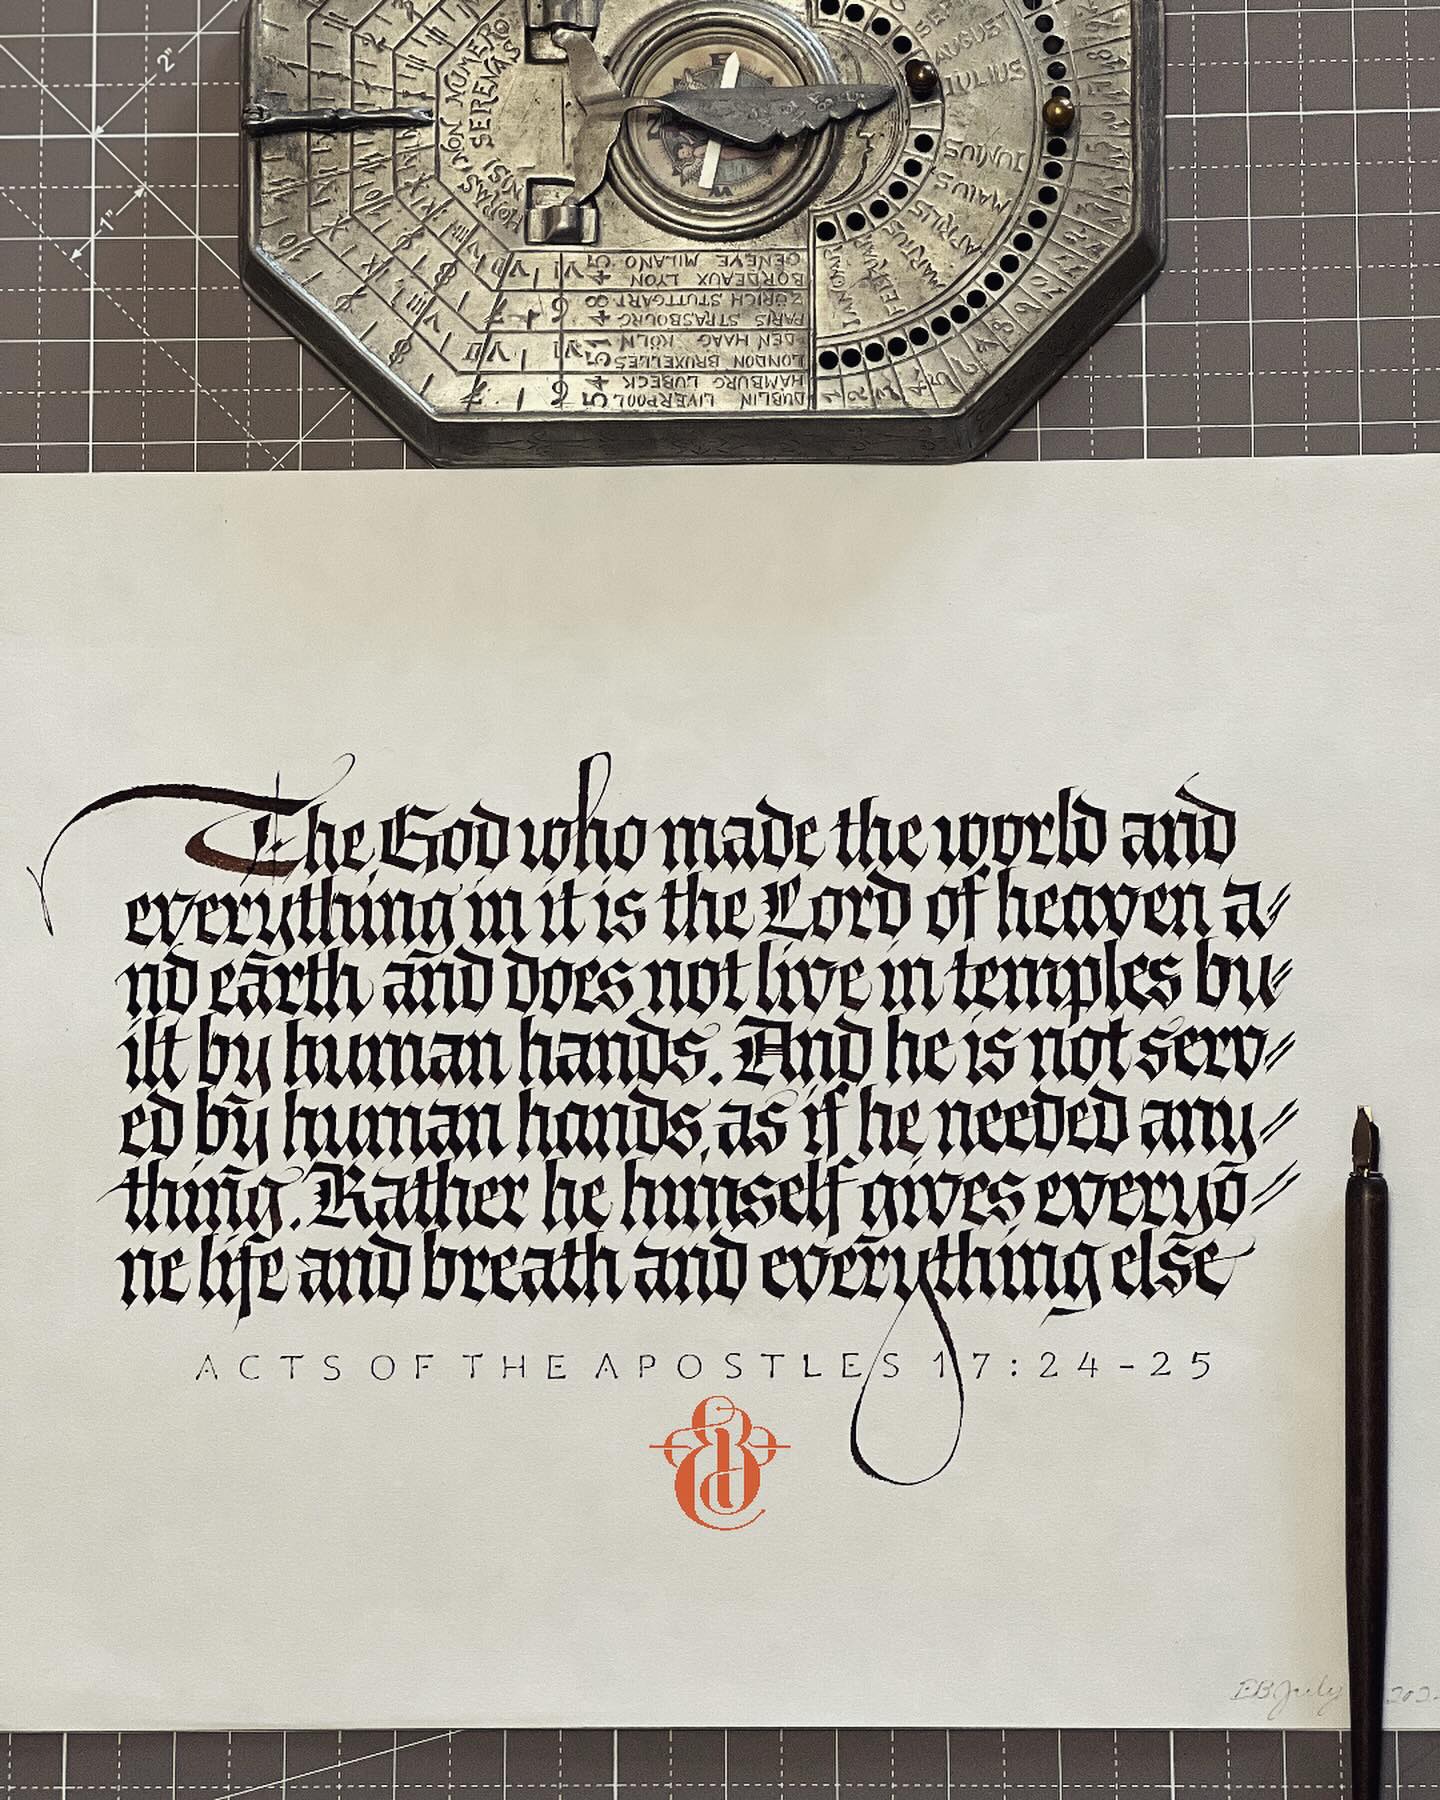 2"
1"
HORAS NON NUMERO
NISI SERENAS
AUGUST
JULIUS
JUNIUS
MAIUS
APRILIS
MARTIUS
GENEVE MILANO
BORDEAUX LYON
ZÜRICH STUTTGART
PARIS STRASBOURG
DEN HAAG KÖLN
LONDON BRUXELLES
HAMBURG LÜBECK
DUBLIN LIVERPOOL 54
The God who made the world and
everything in it is the Lord of heaven a-
nd earth and does not live in temples bu-
ilt by human hands. And he is not serv-
ed by human hands, as if he needed any-
thing. Rather he himself gives everyo-
ne life and breath and everything else
ACTS OF THE APOSTLES 17:24-25
EB July 202